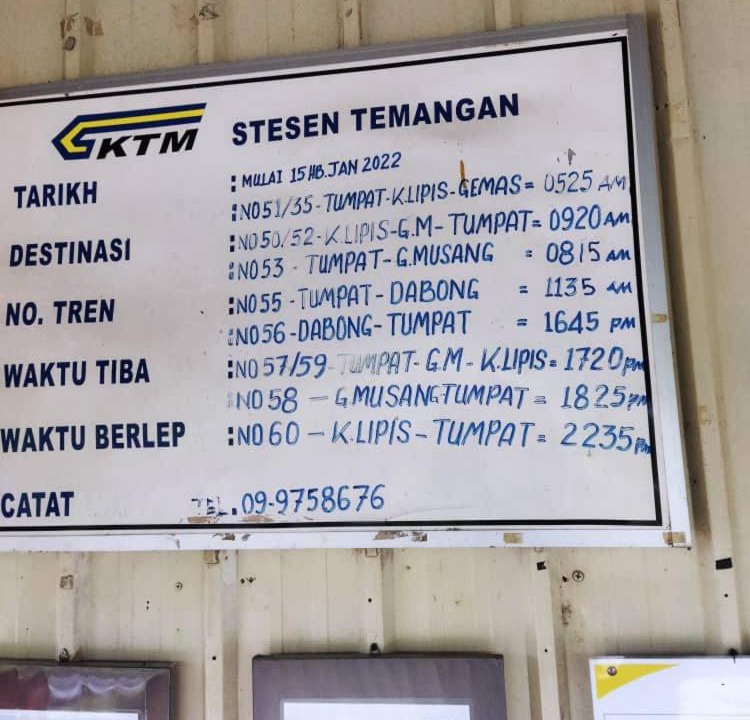 KTM STESEN TEMANGAN
TARIKH : MULAI 15HB.JAN 2022
: NO51/35-TUMPAT-K.LIPIS-GEMAS= 0525 AM
DESTINASI : NO50/52-K.LIPIS-G.M-TUMPAT= 0920 AM
: NO53 - TUMPAT-G.MUSANG = 0815 AM
NO. TREN : NO55 -TUMPAT-DABONG = 1135 AM
: NO56-DABONG-TUMPAT = 1645 PM
WAKTU TIBA : NO57/59-TUMPAT-G.M-K.LIPIS= 1720 PM
: NO58 - G.MUSANG-TUMPAT = 1825 PM
WAKTU BERLEP : NO60 - K.LIPIS-TUMPAT= 2235 PM
CATAT TEL. 09-9758676